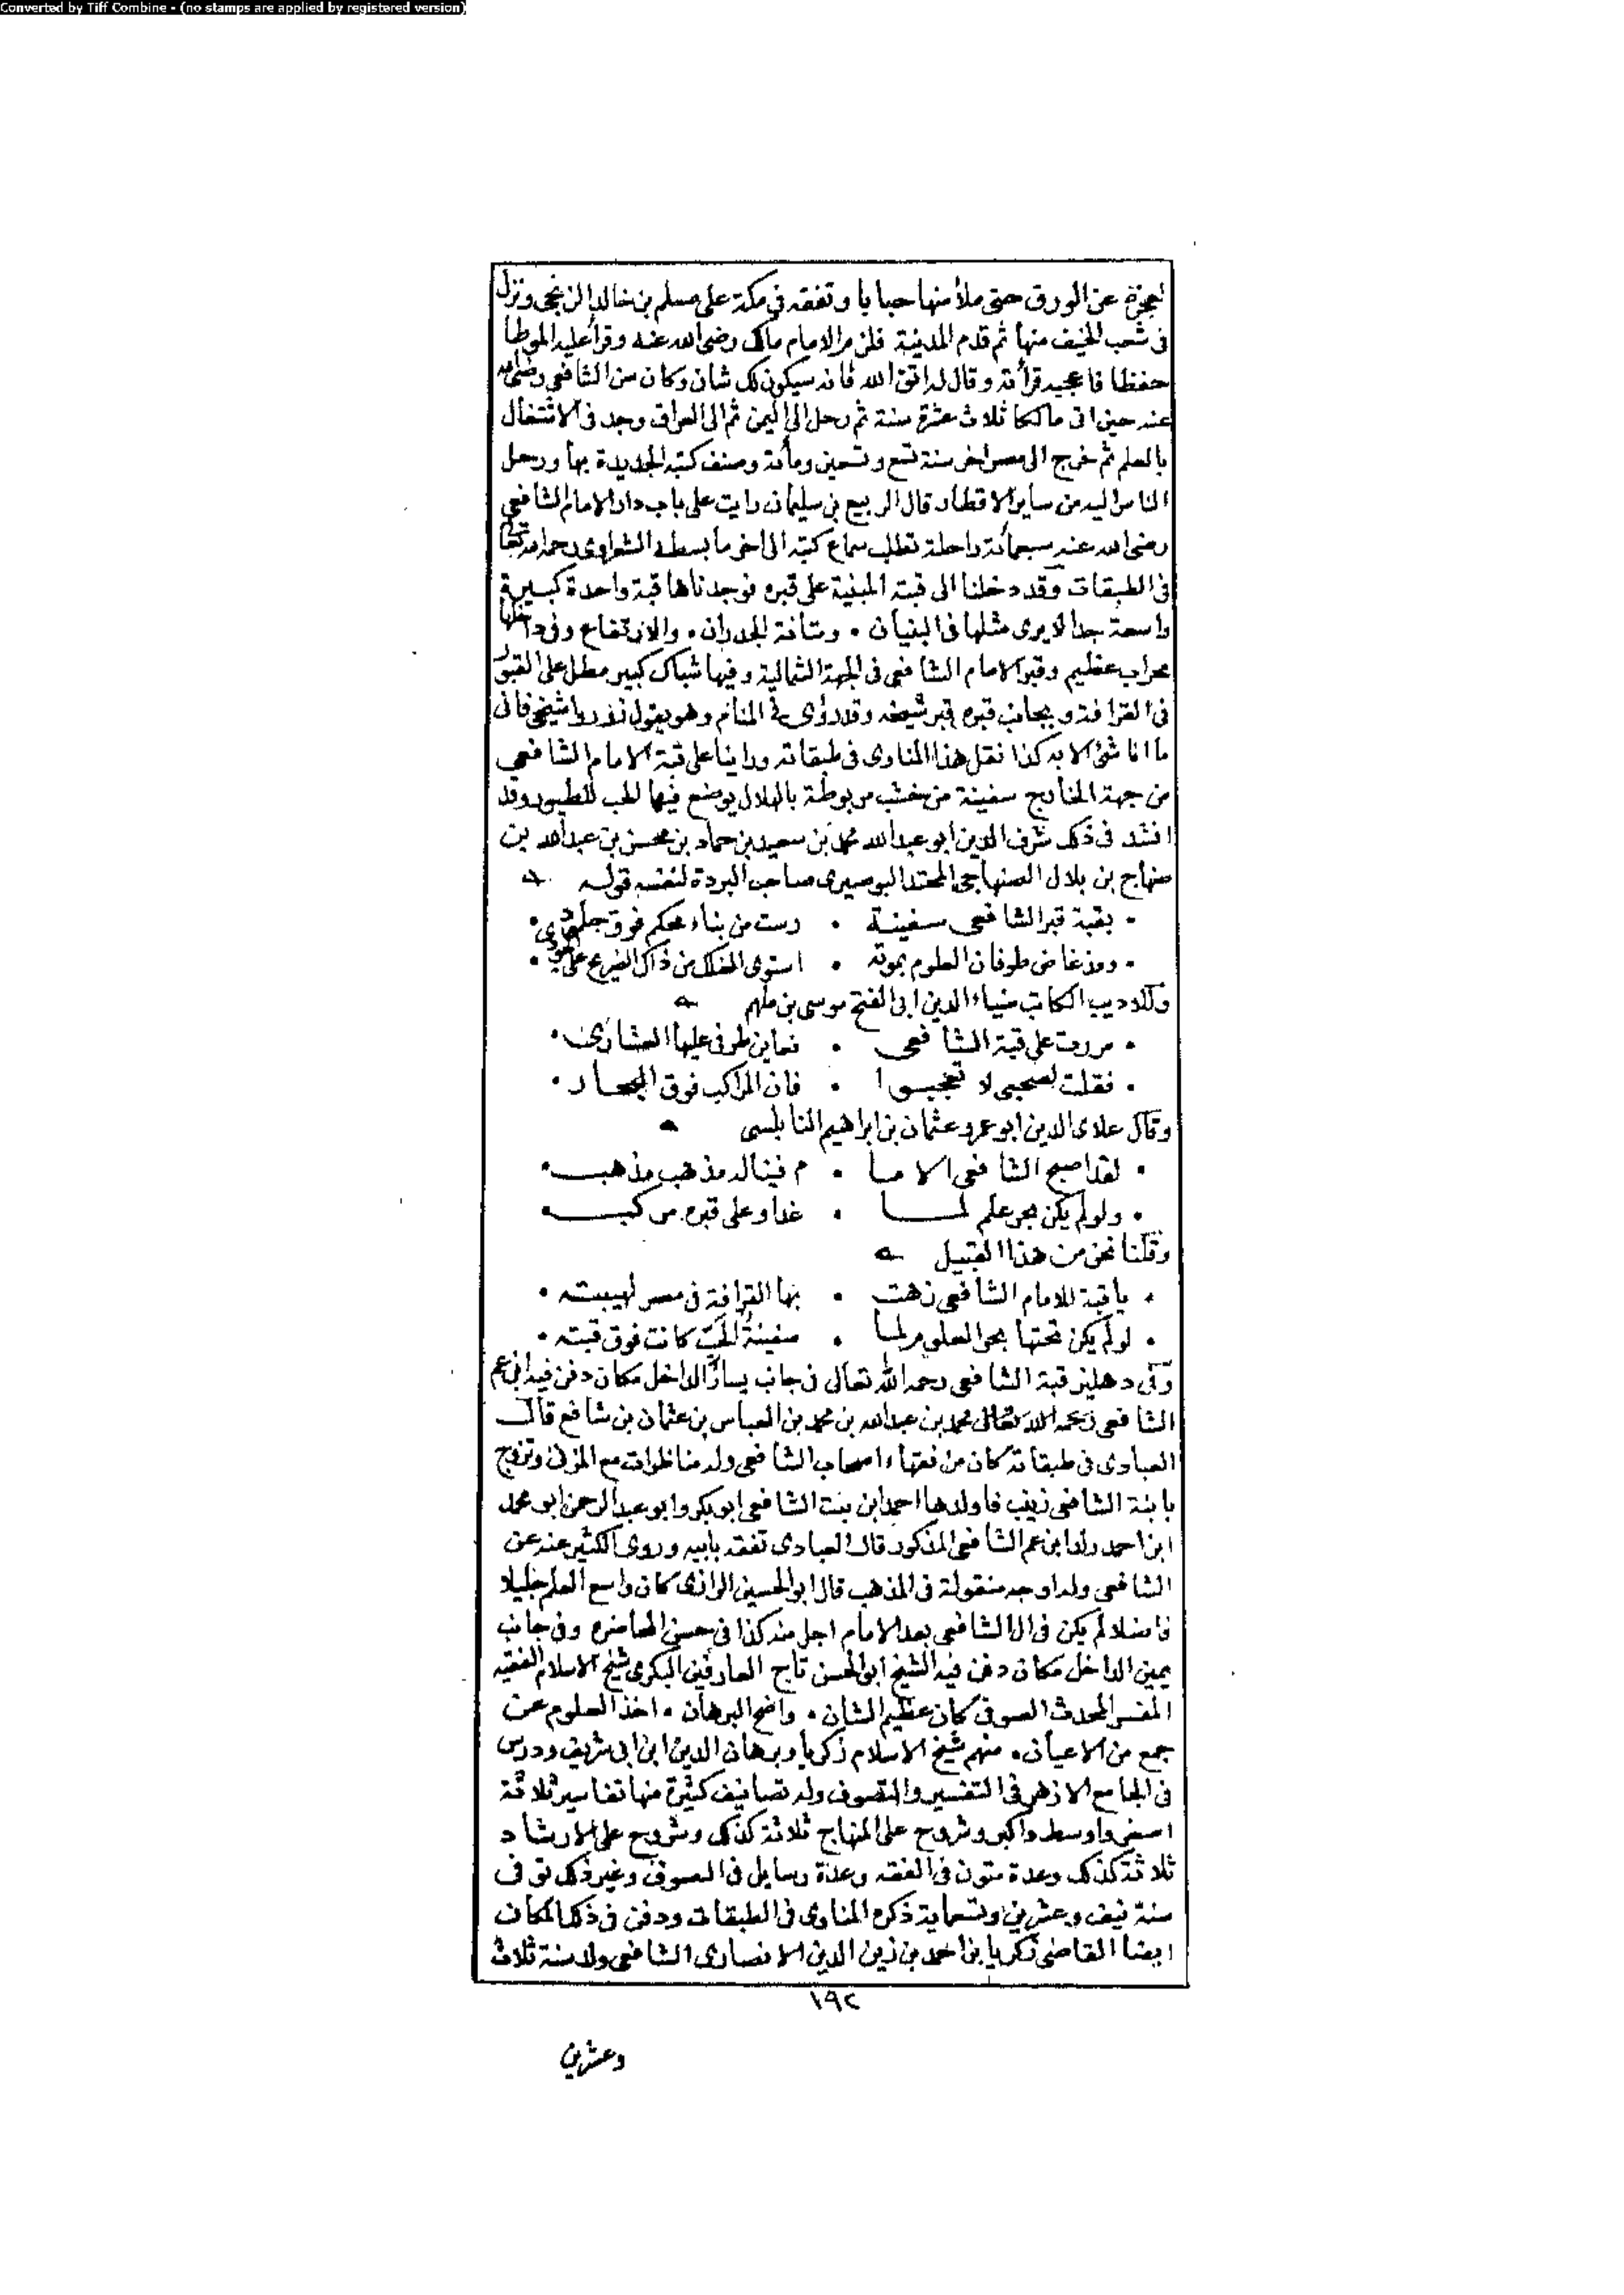 Converted by Tiff Combine - (no stamps are applied by registered version)
لعجزه عن الورق حتى ملأ منها حبابا وتفقه في مكة على مسلم بن خالد الزنجى ونزل
فى شعب الخيف منها ثم قدم المدينة فلزم الامام مالك رضى الله عنه وقرأ عليه الموطا
حفظا فاعجبه قرأته وقال له اتق الله فانه سيكون لك شان وكان سن الشافعى رضى الله
عنه حين اتى مالكا ثلاث عشرة سنة ثم رحل الى اليمن ثم الى العراق وجد فى الاشتغال
بالعلم ثم خرج الى مصر اخر سنة تسع وتسعين ومأئة وصنف كتبه الجديدة بها ورحل
الناس اليه من ساير الاقطار قال الربيع بن سليمان رايت على باب دار الامام الشافعى
رضى الله عنه سبعمائة راحلة تطلب سماع كتبه الى اخر ما بسطه الشعراوى رحمه الله تعالى
فى الطبقات وقد دخلنا الى قبته المبنية على قبره فوجدناها قبة واحدة كبيرة
واسعة جدا لا يرى مثلها فى البنيان . ومتانة الجدران . والارتفاع وفى داخلها
محراب عظيم وقبر الامام الشافعى فى الجهة الشمالية وفيها شباك كبير مطل على القبور
فى القرافة وبجانب قبره قبر شيخه وقد رؤى فى المنام وهو يقول زوروا شيخى فانى
ما انا شئ الا به كذا نقل هذا المناوى فى طبقاته وراينا على قبة الامام الشافعى
من جهة الخارج سفينة من خشب مربوطة بالهلال يوضع فيها الحب للطيور وقد
انشد فى ذلك شرف الدين ابو عبد الله محمد بن سعيد بن حماد بن محسن بن عبد الله بن
صنهاج بن بلال الصنهاجى المحتد البوصيرى صاحب البردة لنفسه قوله
. بقبة قبر الشافعى سفينة . رست من بناء محكم فوق جلمود .
. ومذ غاض طوفان العلوم بموته . استوى الفلك من ذاك الضريح على الجودى .
وللاديب الكاتب ضياء الدين ابى الفتح موسى بن ملهم
. مررت على قبة الشافعى . فعاين طرفى عليها العشارى .
. فقلت لصحبى لا تعجبوا . فان المراكب فوق البحار .
وقال علاى الدين ابو عمرو عثمان بن ابراهيم النابلسى
. لقد اصبح الشافعى الاما . م فينا له مذهب مذهب .
. ولو لم يكن بحر علم لما . غدا وعلى قبره مركب .
وقلنا نحن من هذا القبيل
. يا قبة للامام الشافعى زهت . بها القرافة فى مصر لهيبته .
. لو لم يكن تحتها بحر العلوم لما . سفينة الحب كانت فوق قبته .
وفى دهليز قبة الشافعى رحمه الله تعالى فى جانب يسار الداخل مكان دفن فيه ابن عم
الشافعى رحمه الله تعالى محمد بن عبد الله بن محمد بن العباس بن عثمان بن شافع قال
العبادى فى طبقاته كان من فقهاء اصحاب الشافعى وله مناظرات مع المزنى وتزوج
بابنة الشافعى زينب فاولدها احمد ابن بنت الشافعى ابو بكر وابو عبد الرحمن ابو محمد
ابن احمد ولد ابن عم الشافعى المذكور قال العبادى تفقه بابيه وروى الكثير عنه عن
الشافعى وله اوجه منقولة فى المذهب قال ابو الحسين الرازى كان واسع العلم جليلا
فاضلا لم يكن فى ال الشافعى بعد الامام اجل منه كذا فى حسن المحاضره وفى جانب
يمين الداخل مكان دفن فيه الشيخ ابو الحسن تاج العارفين البكرى شيخ الاسلام الفقيه
المفسر المحدث الصوفى كان عظيم الشان . واضح البرهان . اخذ العلوم عن
جمع من الاعيان . منهم شيخ الاسلام زكريا وبرهان الدين ابن ابى شريف ودرس
فى الجامع الازهر فى التفسير والتصوف وله تصانيف كثيرة منها تفاسير ثلاثة
اصغر واوسط واكبر وشروح على المنهاج ثلاثة كذلك وشروح على الارشاد
ثلاثة كذلك وعدة متون فى الفقه وعدة رسايل فى التصوف وغير ذلك توفى
سنة نيف وعشرين وتسماية ذكره المناوى فى الطبقات ودفن فى ذلك المكان
ايضا القاضى زكريا بن احمد بن زين الدين الانصارى الشافعى ولد سنة ثلاث
١٩٢
وعشرين